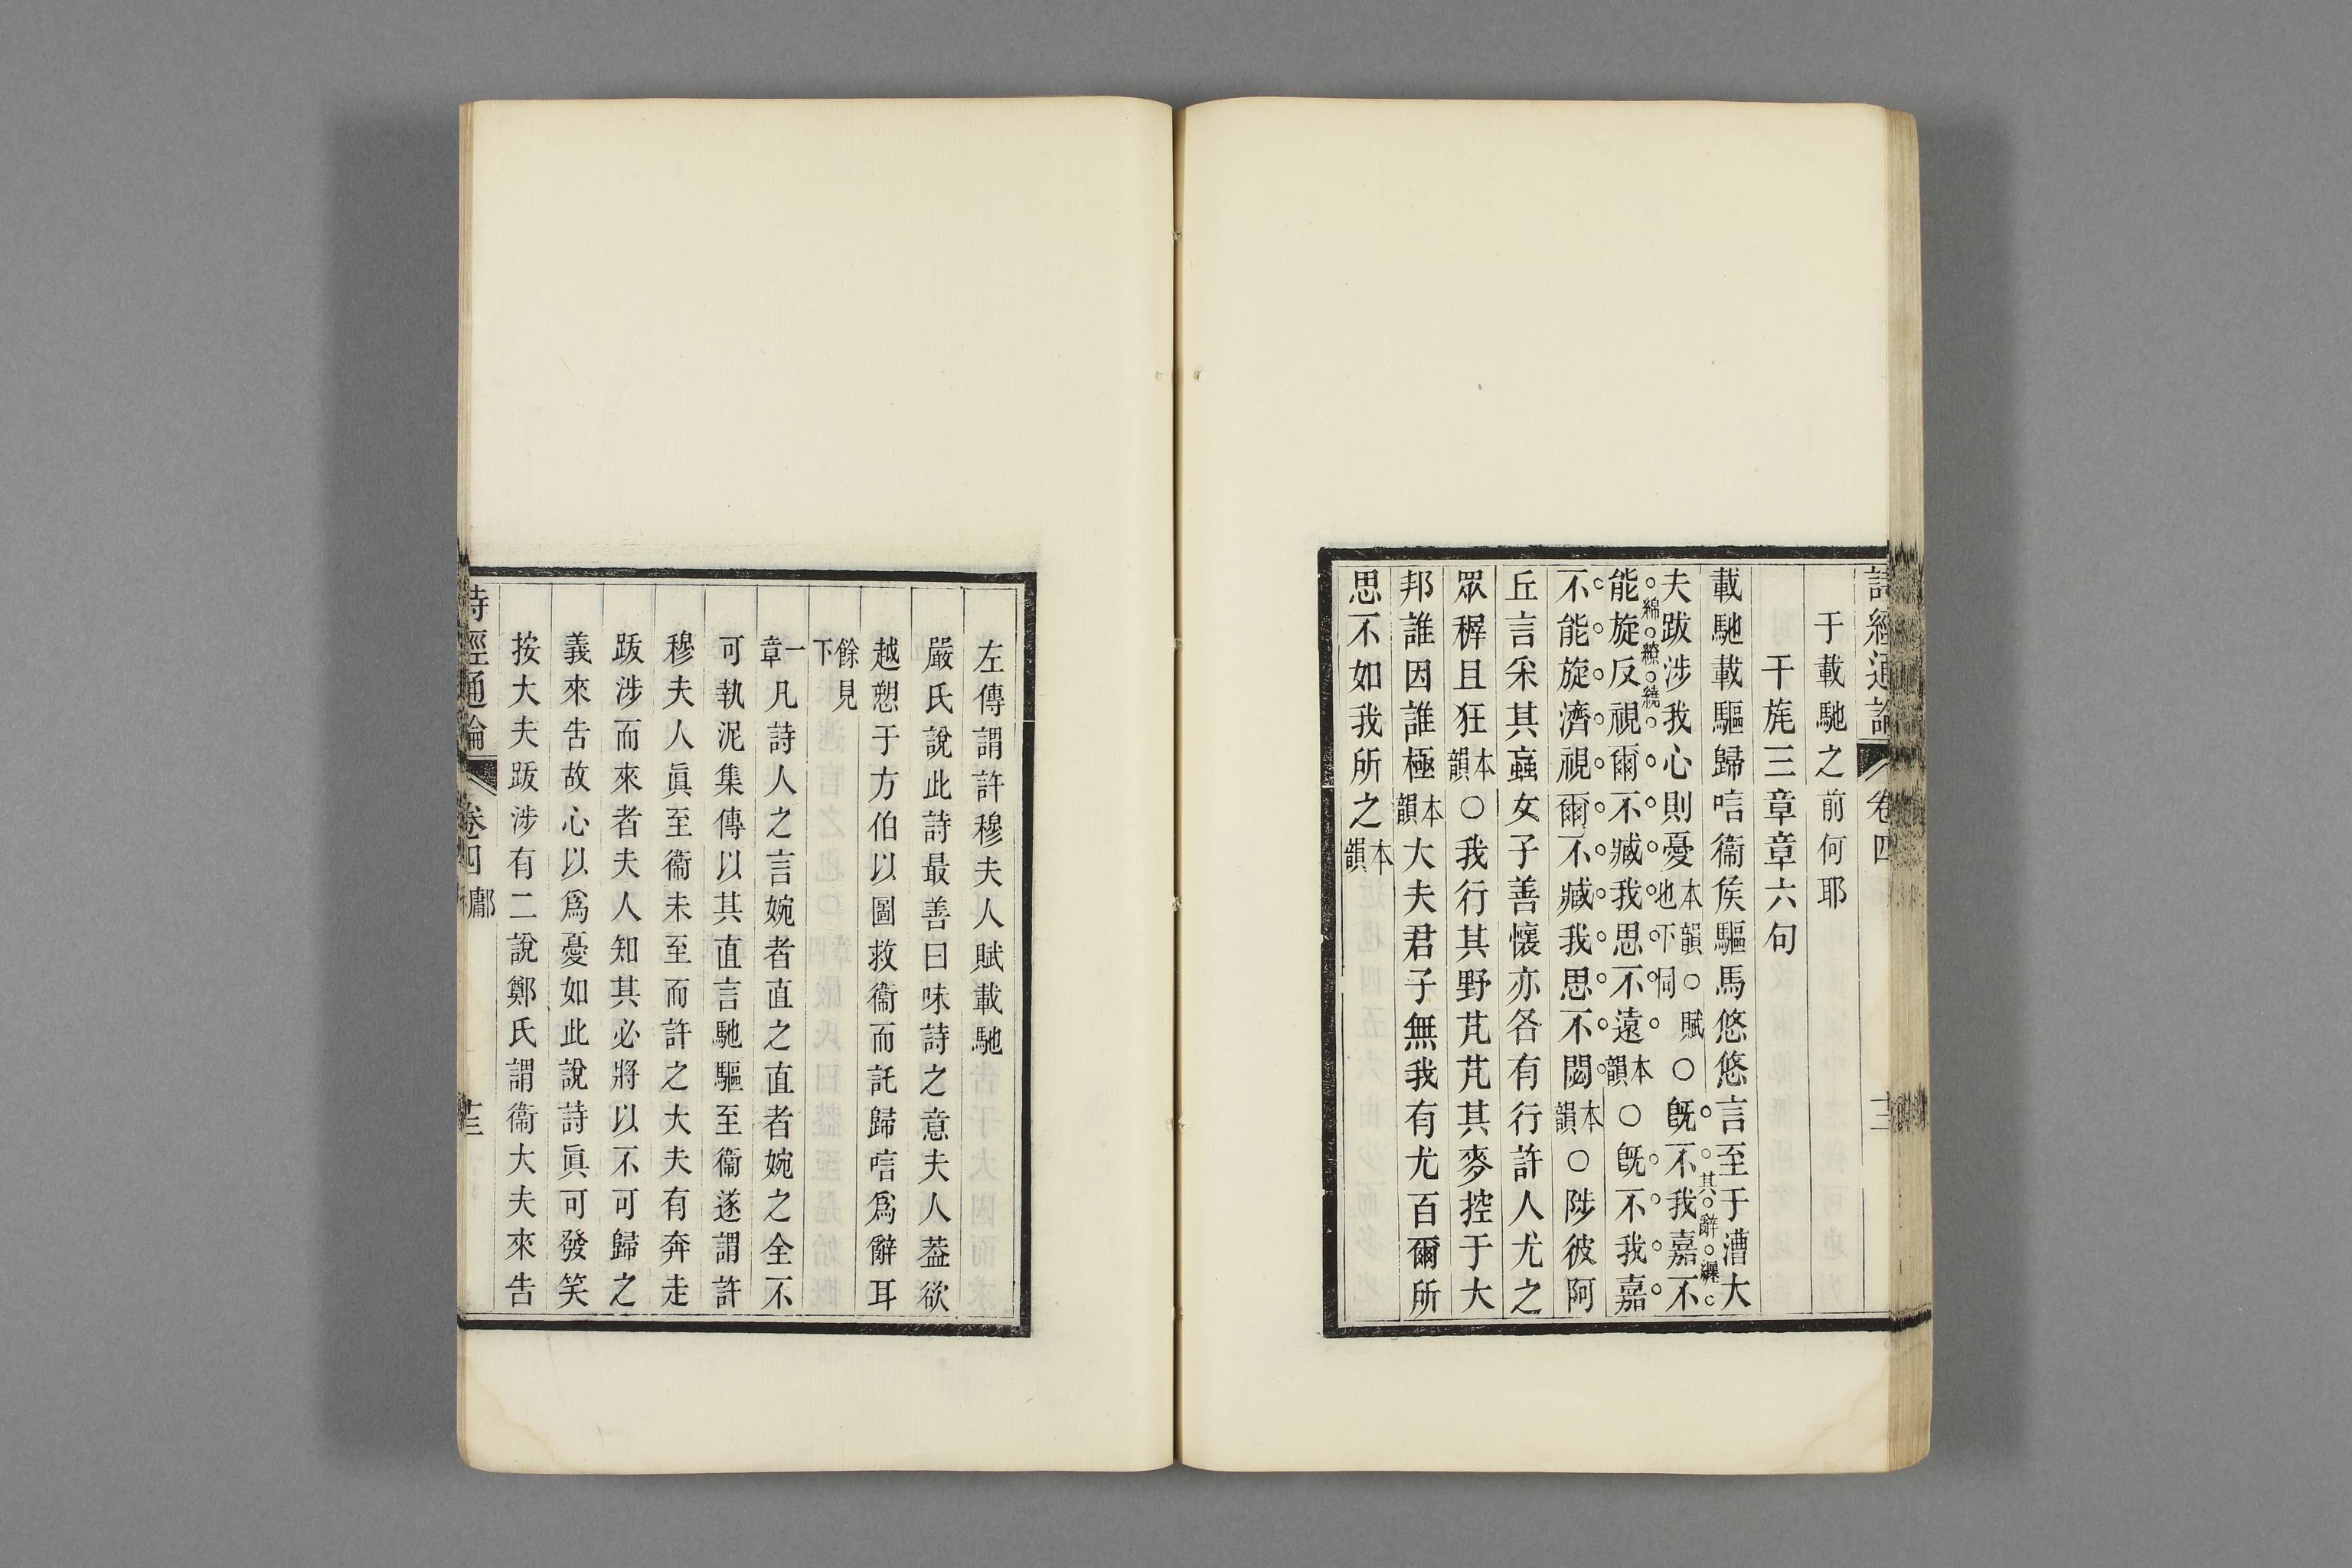 詩經通論 卷四 十二
于載馳之前何耶
干旄三章章六句
載馳載驅歸唁衞矦驅馬悠悠言至于漕大
夫跋涉我心則憂本韻○賦也下同○旣不我嘉不
其辭纏
綿繚繞
能旋反視爾不臧我思不遠本韻○旣不我嘉
不能旋濟視爾不臧我思不閟本韻○陟彼阿
丘言采其蝱女子善懷亦各有行許人尤之
眾穉且狂本韻○我行其野芃芃其麥控于大
邦誰因誰極本韻大夫君子無我有尤百爾所
思不如我所之本韻
左傳謂許穆夫人賦載馳
嚴氏說此詩最善曰味詩之意夫人葢欲
越愬于方伯以圖救衞而託歸唁爲辭耳
餘見下
一章凡詩人之言婉者直之直者婉之全不
可執泥集傳以其直言馳驅至衞遂謂許
穆夫人眞至衞未至而許之大夫有奔走
跋涉而來者夫人知其必將以不可歸之
義來告故心以爲憂如此說詩眞可發笑
按大夫跋涉有二說鄭氏謂衞大夫來告
詩經通論 卷四 鄘 十三